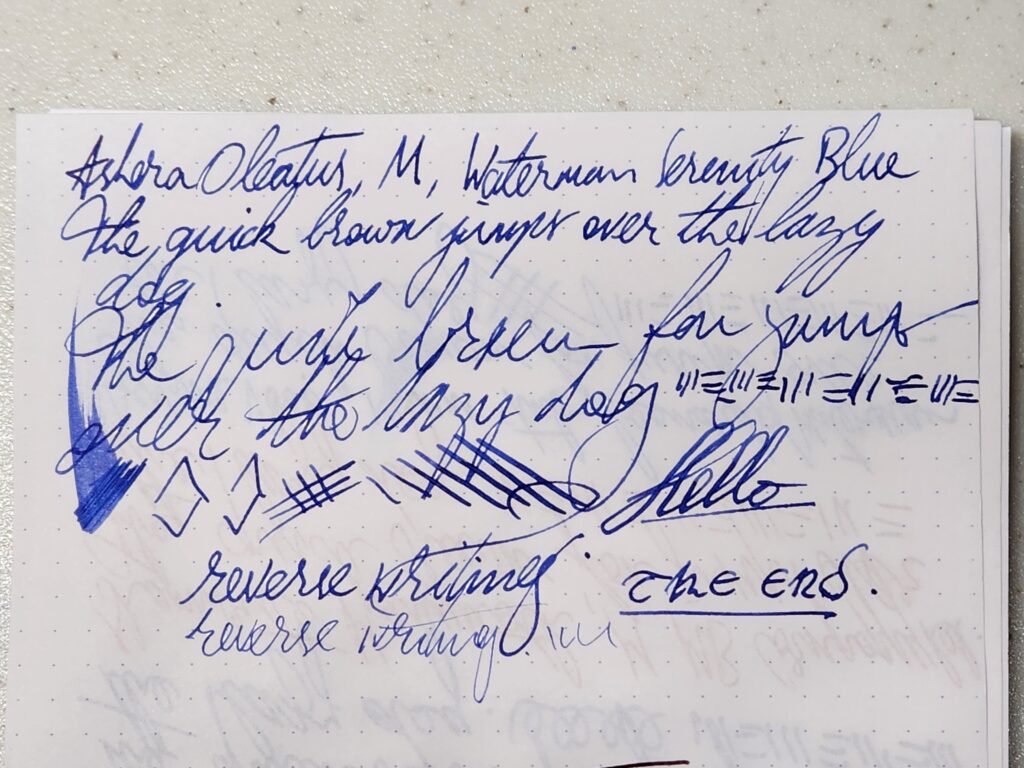 Ashera Oleatus, M, Waterman Serenity Blue
The quick brown jumps over the lazy
dog.
The quick brown fox jumps
over the lazy dog
Hello
reverse writing.
THE END.
reverse writing